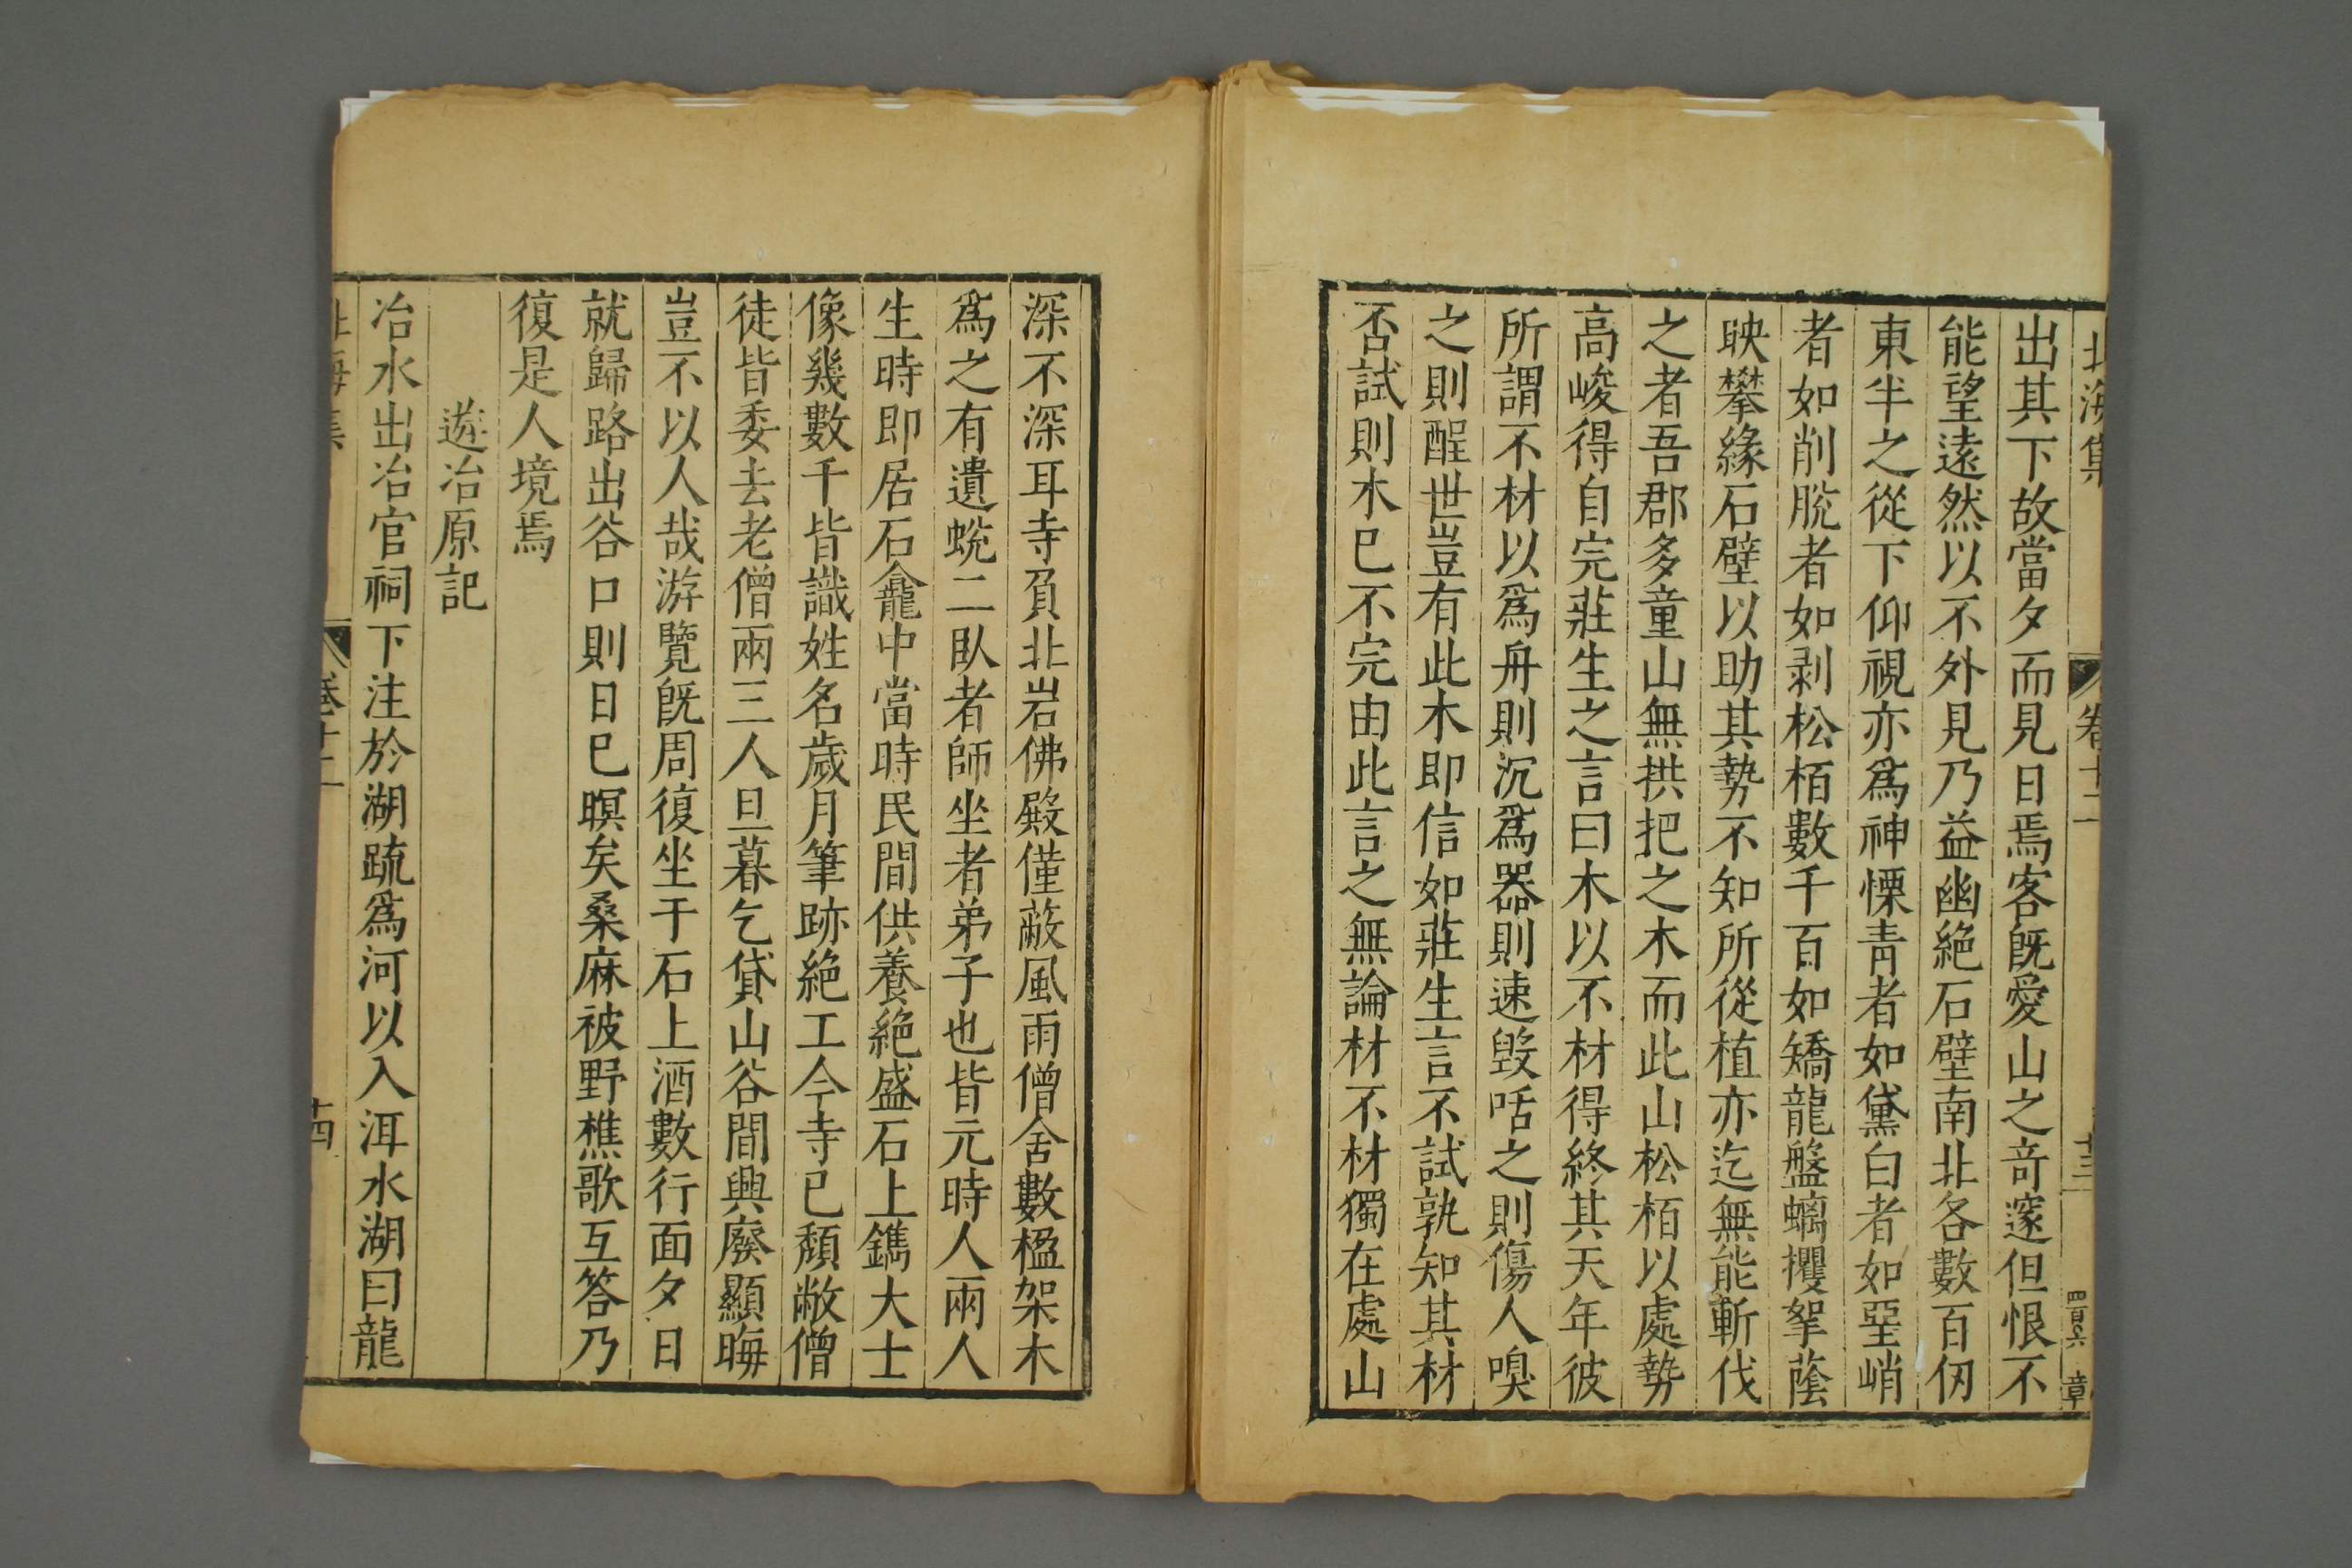 北海集 卷十二 十三 四百六 章
出其下故當夕而見日焉客旣愛山之竒邃但恨不
能望遠然以不外見乃益幽絕石壁南北各數百仭
東半之從下仰視亦爲神慄青者如黛白者如堊峭
者如削脫者如剥松栢數千百如矯龍盤螭攫拏蔭
映攀緣石壁以助其勢不知所從植亦迄無能斬伐
之者吾郡多童山無拱把之木而此山松栢以處勢
高峻得自完莊生之言曰木以不材得終其天年彼
所謂不材以爲舟則沉爲器則速毀咶之則傷人嗅
之則酲世豈有此木即信如莊生言不試孰知其材
否試則木已不完由此言之無論材不材獨在處山
深不深耳寺負北岩佛殿僅蔽風雨僧舍數楹架木
爲之有遺蛻二臥者師坐者弟子也皆元時人兩人
生時即居石龕中當時民間供養絕盛石上鐫大士
像幾數千皆識姓名歲月筆跡絕工今寺已頹敝僧
徒皆委去老僧兩三人旦暮乞貸山谷間興廢顯晦
豈不以人哉游覽旣周復坐于石上酒數行面夕日
就歸路出谷口則日已暝矣桑麻被野樵歌互答乃
復是人境焉
遊冶原記
冶水出冶官祠下注於湖疏爲河以入洱水湖曰龍
北海集 卷十二 十四